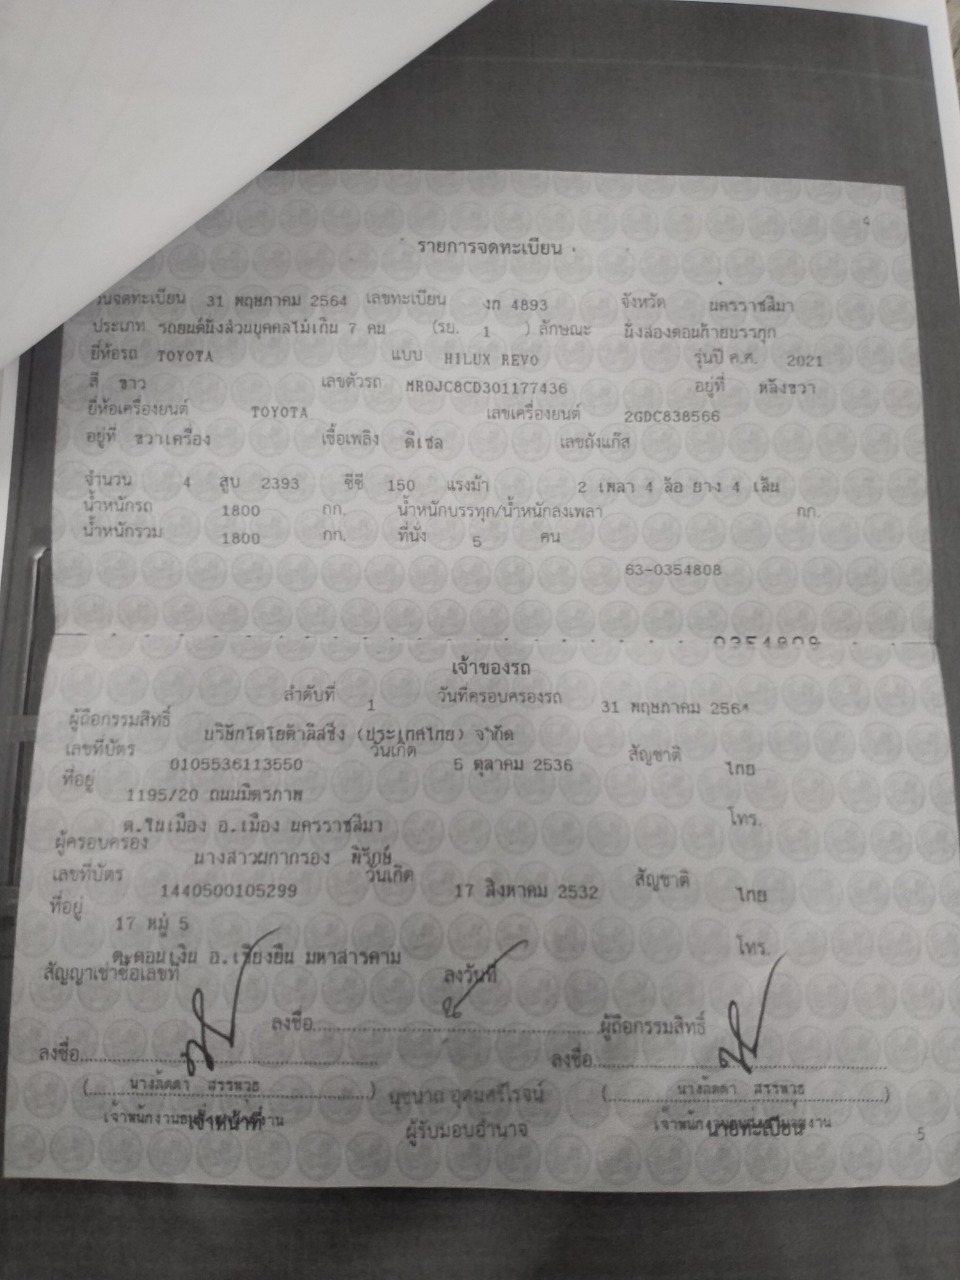 4
รายการจดทะเบียน
วันจดทะเบียน 31 พฤษภาคม 2564 เลขทะเบียน งก 4893 จังหวัด นครราชสีมา
ประเภท รถยนต์นั่งส่วนบุคคลไม่เกิน 7 คน (รย. 1 ) ลักษณะ นั่งสองตอนท้ายบรรทุก
ยี่ห้อรถ TOYOTA แบบ HILUX REVO รุ่นปี ค.ศ. 2021
สี ขาว เลขตัวรถ MR0JC8CD301177436 อยู่ที่ หลังขวา
ยี่ห้อเครื่องยนต์ TOYOTA เลขเครื่องยนต์ 2GDC838566
อยู่ที่ ขวาเครื่อง เชื้อเพลิง ดีเซล เลขถังแก๊ส
จำนวน 4 สูบ 2393 ซีซี 150 แรงม้า 2 เพลา 4 ล้อ ยาง 4 เส้น
น้ำหนักรถ 1800 กก. น้ำหนักบรรทุก/น้ำหนักลงเพลา กก.
น้ำหนักรวม 1800 กก. ที่นั่ง 5 คน
63-0354808
เจ้าของรถ
ลำดับที่ 1 วันที่ครอบครองรถ 31 พฤษภาคม 2564
ผู้ถือกรรมสิทธิ์ บริษัทโตโยต้าลิสซิ่ง (ประเทศไทย) จำกัด
เลขที่บัตร 0105536113550 วันเกิด 5 ตุลาคม 2536 สัญชาติ ไทย
ที่อยู่ 1195/20 ถนนมิตรภาพ
ต.ในเมือง อ.เมือง นครราชสีมา โทร.
ผู้ครอบครอง นางสาวผกากรอง พิรักษ์
เลขที่บัตร 1440500105299 วันเกิด 17 สิงหาคม 2532 สัญชาติ ไทย
ที่อยู่ 17 หมู่ 5
ต.ดอนเงิน อ.เชียงยืน มหาสารคาม โทร.
สัญญาเช่าซื้อเลขที่ ลงวันที่
ลงชื่อ ผู้ถือกรรมสิทธิ์
ลงชื่อ ลงชื่อ
(นางลัดดา สรรพวุธ) นุชนาถ อุดมศรีโรจน์ (นางลัดดา สรรพวุธ)
เจ้าหน้าที่ ผู้รับมอบอำนาจ นายทะเบียน
5